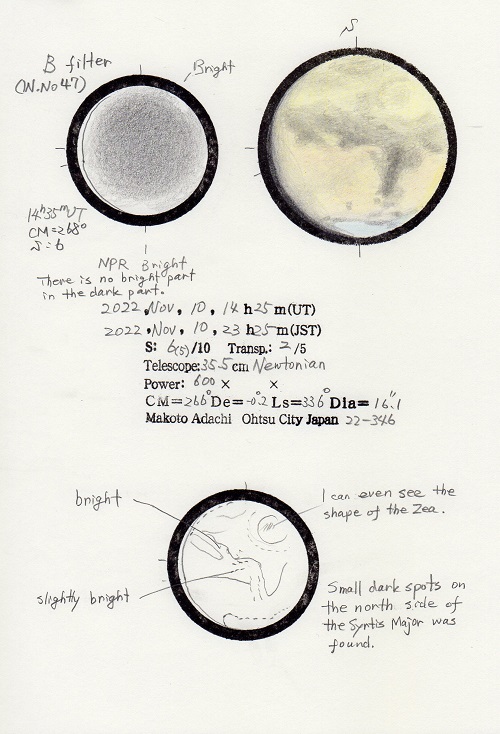 S
B filter
(W.No47)
Bright
14h35mUT
CM=268°
S:6
NPR Bright
There is no bright part
in the dark part.
2022, Nov, 10, 14 h 25 m(UT)
2022, Nov, 10, 23 h 25 m(JST)
S: 6(5)/10 Transp.: 2/5
Telescope: 35.5 cm Newtonian
Power: 600 × ×
CM=266° De=-0.2° Ls=336° Dia= 16."1
Makoto Adachi Ohtsu City Japan 22-346
bright
I can even see the
shape of the Zea.
slightly bright
Small dark spots on
the north side of
the Syrtis Major was
found.